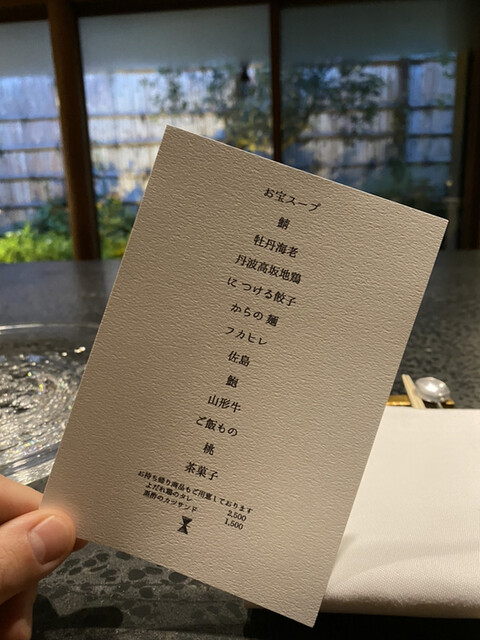 お宝スープ
鯖
牡丹海老
丹波高坂地鶏
に つける餃子
からの 麺
フカヒレ
佐島
鮑
山形牛
ご飯もの
桃
茶菓子
お持ち帰り商品もご用意しております
よだれ鶏のタレ 2,500
黒酢のカツサンド 1,500